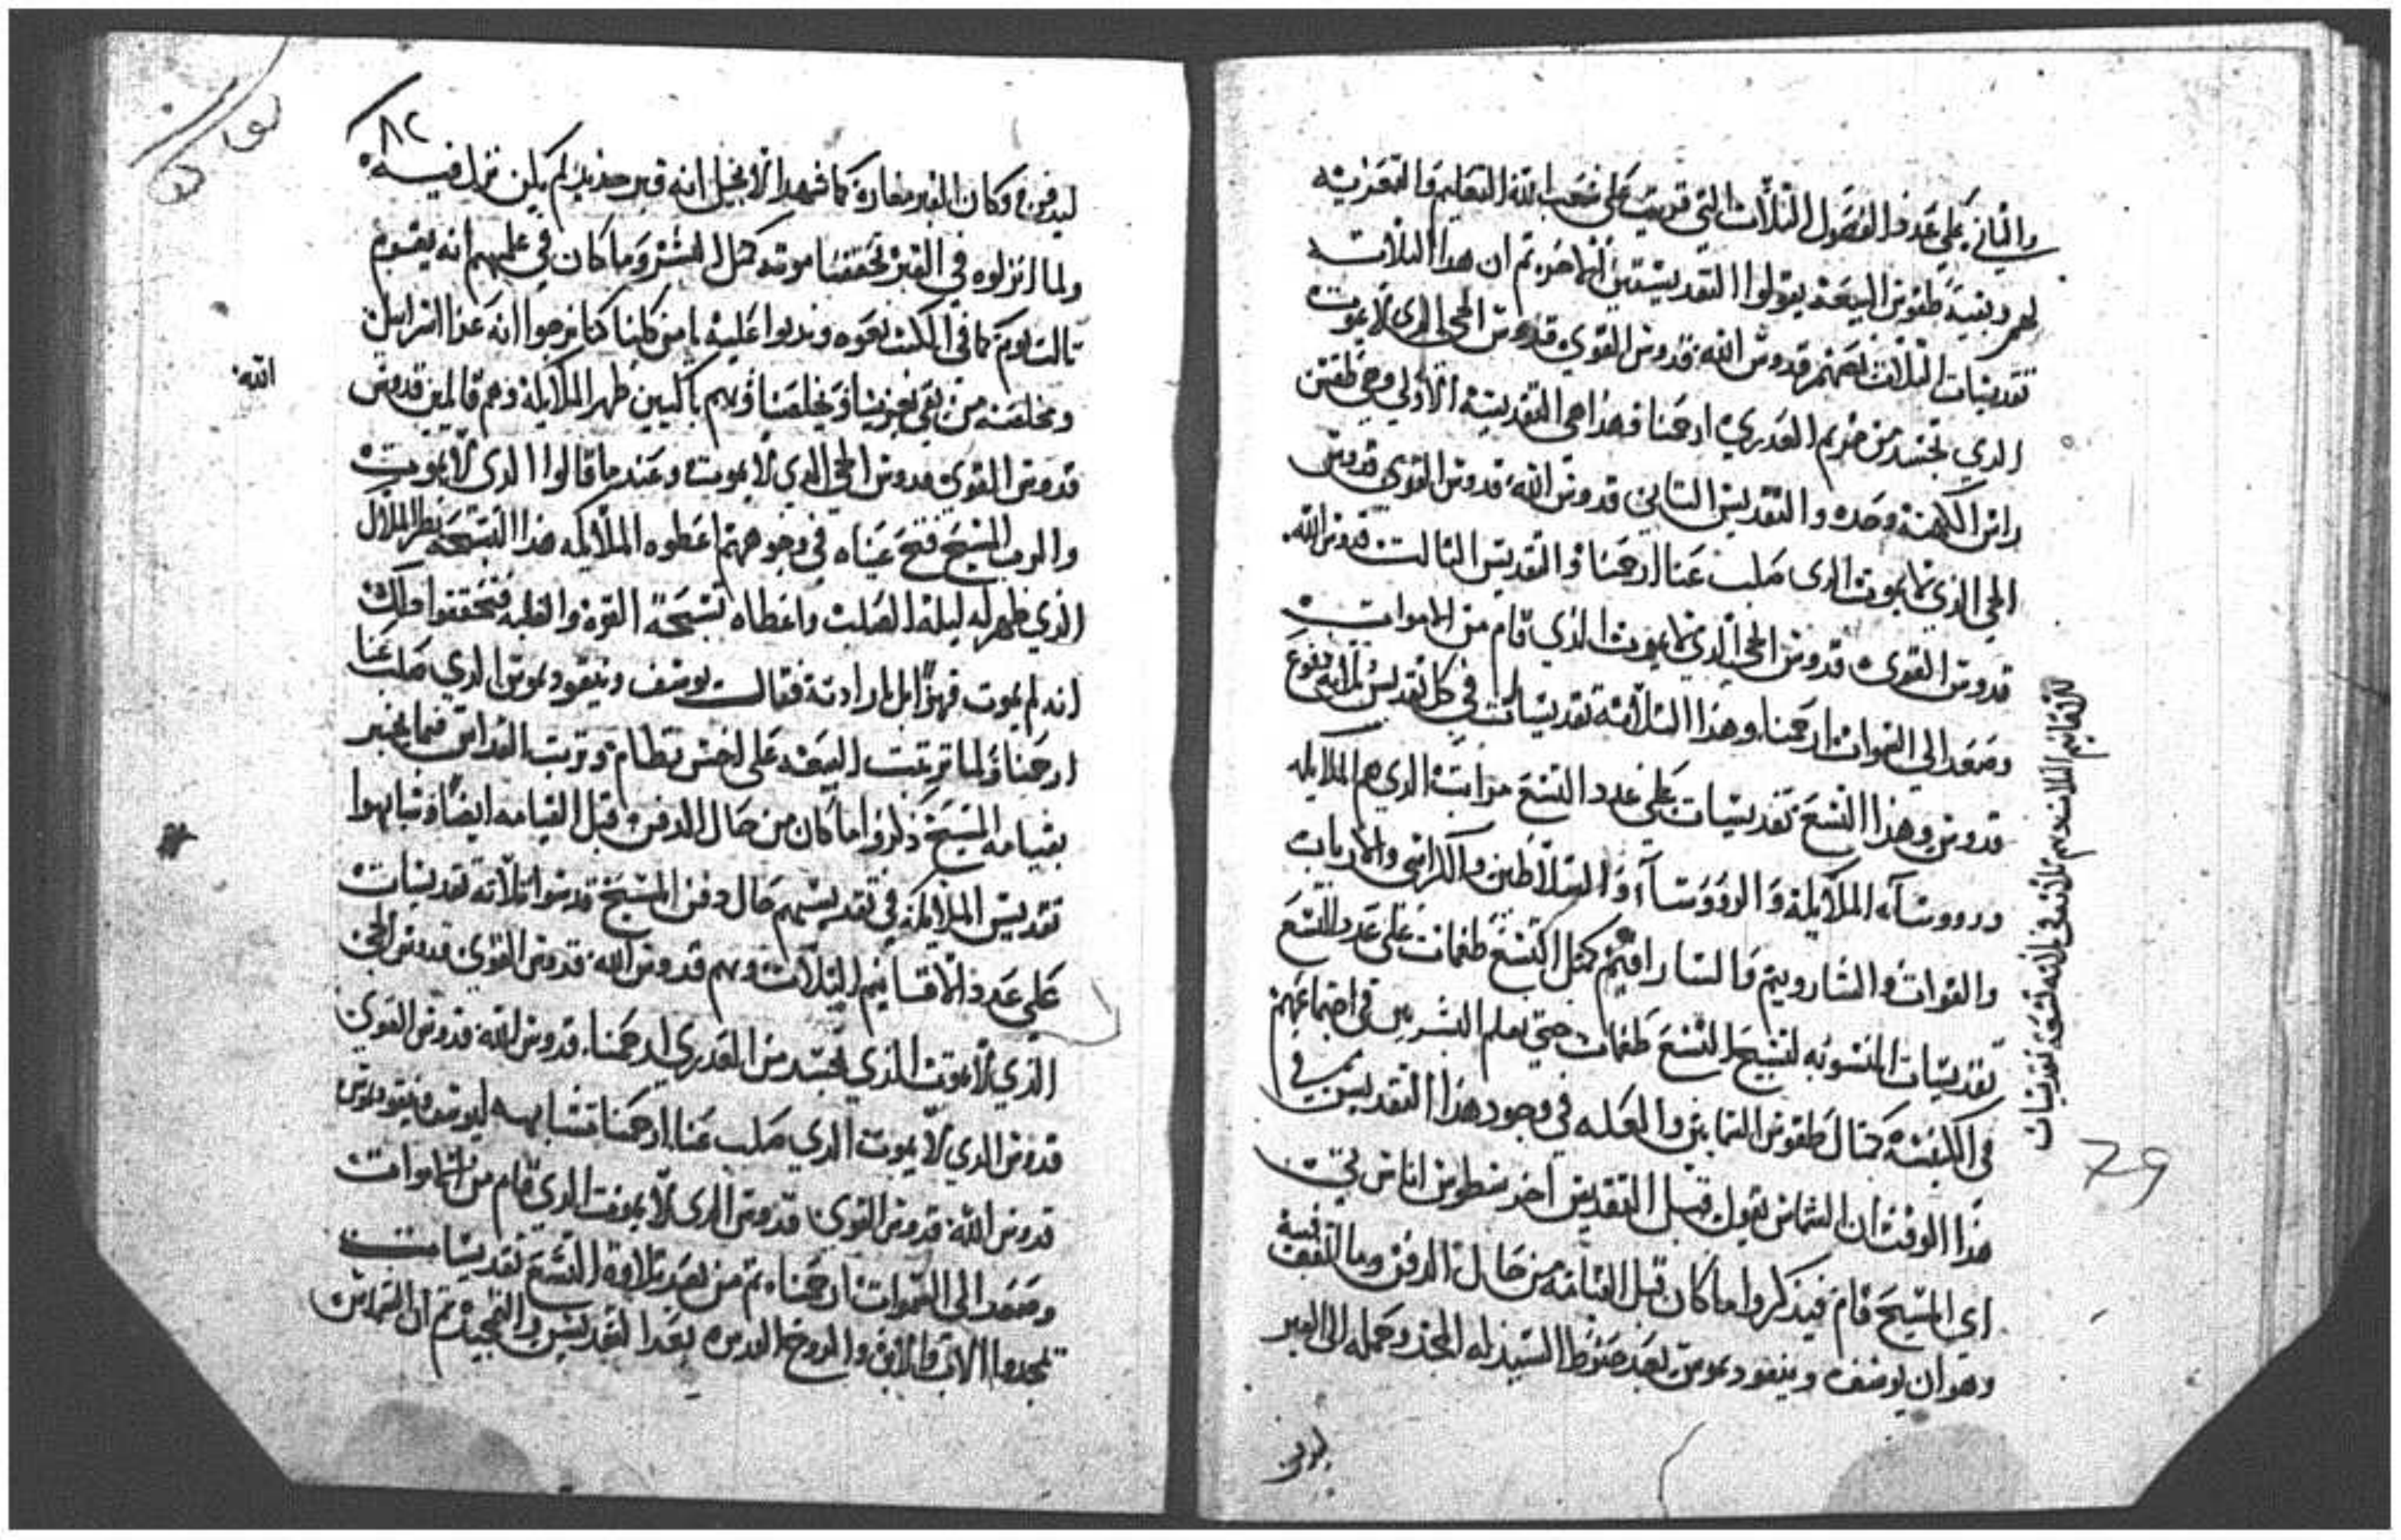 والثاني على عدد الفصول الثلاث التي قريت على شعب الله التعليم والتعزيه
لهم وبقية طقوس البيعة يقولوا التقديستين الاخره ثم ان هذا الثلاث
تقديسات الثلاث بعضهم قدوس الله قدوس القوي قدوس الحي الدي لا يموت
الدي تجسد من مريم العدري ارحمنا فهذا هي التقديسة الاولي وهي طقس
راس الكهنة وحده والتقديس الثاني قدوس الله قدوس القوي قدوس
الحي الذي لا يموت الدى صلب عنا ارحمنا والتقديس الثالت قدوس الله
قدوس القوى قدوس الحي الذي لا يموت الذي قام من الاموات
وصعد الي السموات ارحمنا وهذا الثلاثة تقديسات في كل تقديس ثلاثه دفوع
قدوس وهذا التسع تقديسات على عدد التسع مراتب الدي هم الملايكه
وروسآء الملايكة والروسآء والسلاطين والكراسي والارباب
والقوات والشاروبيم والسارافيم كمثل التسع طغمات على عدد التسع
تقديسات المنسوبه لتسبيح التسع طغمات حتى يعلم البشريين في اجتماعهم
في الكنيسة كمثال طقوس السمايين والعله في وجود هذا التقديس في
هذا الوقت ان الشماس يقول قبل التقديس اخرسطوس اناستي
اي المسيح قام فيذكروا ما كان قبل القيامه من حال الدفن وما
وهو ان يوسف ونيقوديموس بعد حنوط السيد له المجد وحمله الى القبر
ليدفن
الاقانيم الثلاثه هم ثلاثه في ثلاثه تسعة تقديسات
79
٨٢
ليدفن وكان القبر مغارة كما شهد الانجيل انه قبر جديد لم يكن نزل فيه
ولما انزلوه في القبر تحققنا موته كمثل البشر وما كان في علمهم انه يقوم
تالت يوم كما في الكتب نعوه وندبوا عليه يا من كلنا كنا نرجوا انه عز اسرايل
ومخلصه من بقي يعزينا ويخلصنا وهم باكيين ظهر الملايكة وهم قايلين قدوس
الله
قدوس القوي قدوس الحي الدي لا يموت وعند ما قالوا الدى لا يموت
والرب المسيح فتح عيناه في وجوههم اعطوه الملايكه هذا التسبحه نظر الملاك
الذي ظهر له ليلة الصلب واعطاه تسبحة القوة والغلبه فتحققوا
انه لم يموت قهرًا بل بارادته فقالت يوسف ونيقوديموس الدي صلب عنا
ارحمنا ولما ترتبت البيعه على احسن نظام وترتب القداس فيما يخبر
بقيامه المسيح ذكروا ما كان من حال الدفن قبل القيامه ايضًا وتبابهوا
تقديس الملايكة في تقديسهم حال دفن المسيح قدسوا ثلاثه تقديسات
على عدد الاقانيم الثلاث وهم قدوس الله قدوس القوي قدوس الحي
الذي لا يموت الذي تجسد من العدري ارحمنا قدوس الله قدوس القوي
قدوس الدي لا يموت الدي صلب عنا ارحمنا تشابهه ليوسف ونيقوديموس
قدوس الله قدوس القوي قدوس الدى لا يموت الدي قام من الاموات
وصعد الى السموات ارحمنا ثم من بعد تلاوة التسع تقديسات
تمجدوا الاب والابن والروح القدس وبعد التقديس والتمجيد ثم ان الشماس